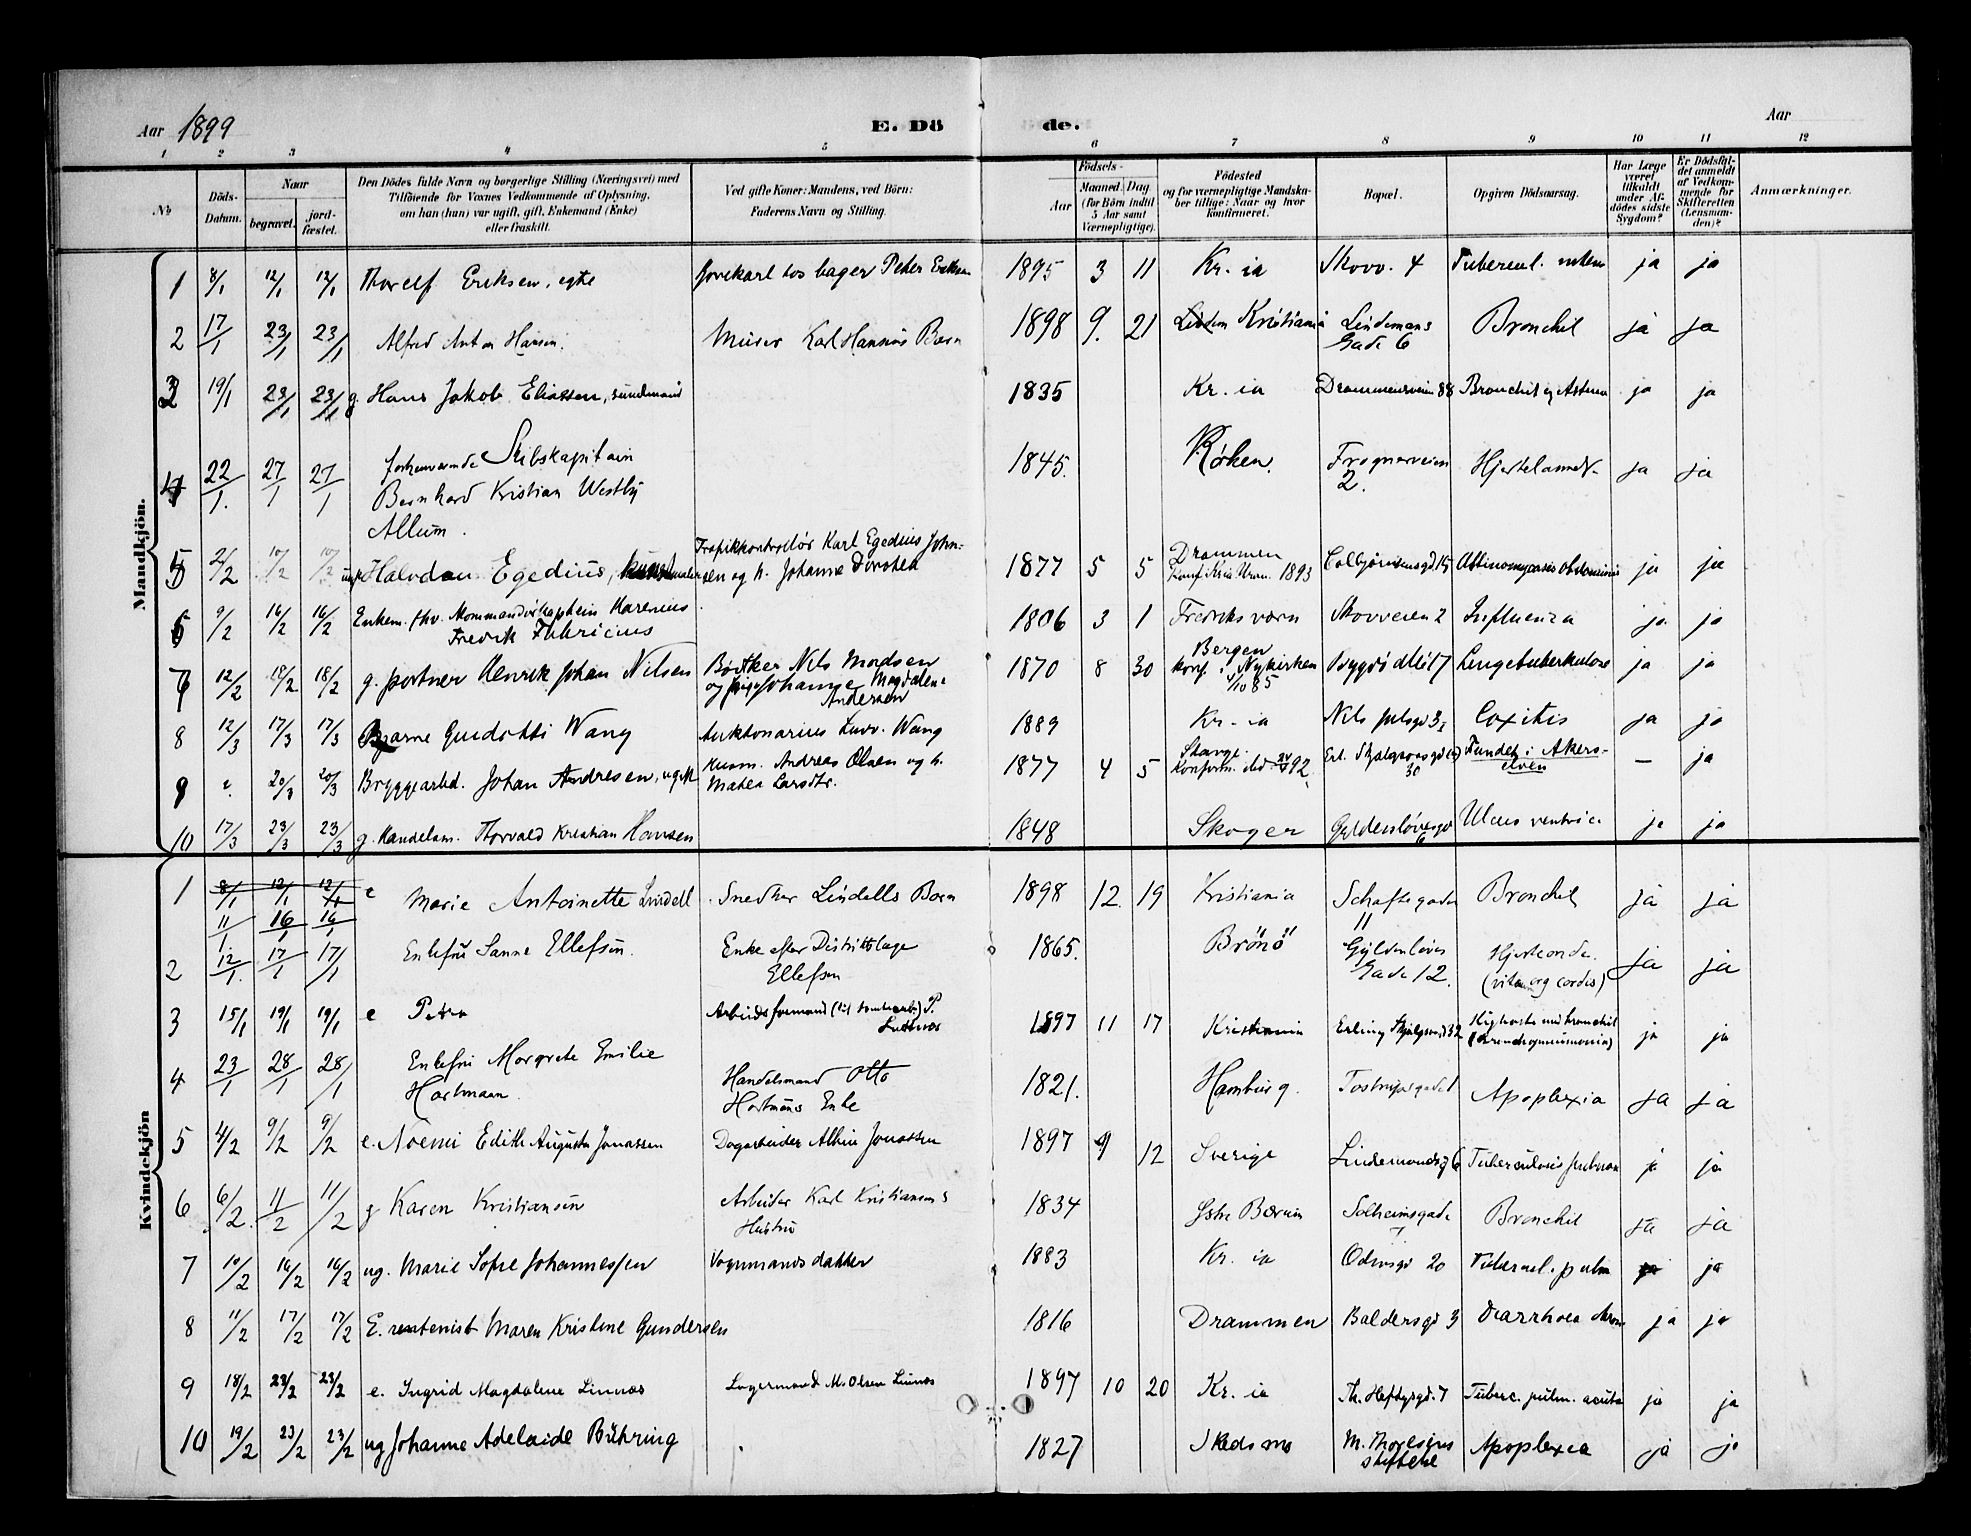 Aar 1899 E. Dö de. Aar
1 2 3 4 5 6 7 8 9 10 11 12
№ Döds-Datum. Naar begravet. jord-fæstet. Den Dödes fulde Navn og borgerlige Stilling (Næringsvei) med Tilföiende for Voxnes Vedkommende af Oplysning, om han (hun) var ugift, gift, Enkemand (Enke) eller fraskilt. Ved gifte Koner: Mandens, ved Börn: Faderens Navn og Stilling. Födsels- Aar Maaned. Dag. (for Börn indtil 5 Aar samt Værnepligtige). Födested og for værnepligtige Mandska-ber tillige: Naar og hvor konfirmeret. Bopæl. Opgiven Dödsaarsag. Har Læge været tilkaldt under Af-dödes sidste Sygdom? Er Dödsfal-det anmeldt af Vedkom-mende for Skifteretten (Lensman-den)? Anmærkninger.
Mandkjön.
1 8/1 12/1 12/1 Thorolf Eriksen, egte hos bager Peter Eriksen 1895 3 11 Kr.ia Skovv. 4 Tubercul. ja ja
2 17/1 23/1 23/1 Alfred Anton Hansen. Murer Karl Hansens Barn 1898 9. 21 Kristiania Lindemans Gade 6 Bronchit ja ja
3 19/1 23/1 23/1 g. Hans Jakob Eliassen, 1835 Kr.ia Drammensveien 88 Bronchit og Astma ja ja
4 22/1. 27/1 27/1 forhenværende Skibskapitain Bernhard Kristian Westby Allum. 1845. Röken. Frognerveien 2. ja ja
5 2/2 10/2 10/2 ug. Halvdan Egedius, kunstmaler Trafikkontrollör Karl Egedius Johnsen og h. Johanne 1877 5 5 Drammen Konf. 1893 Colbjörnsensgd. 15 Aktinomycosis abdominis ja ja
6 9/2 16/2 16/2 Enkem. fhv. Kommandörkaptein Karenius Fredrik Fabricius 1806 3 1 Fredriksværn Skovveien 2 Influenza ja ja
7 12/2 18/2 18/2 g. portner Henrik Johan Nilsen Bödker Nils Madsen og Johanne Magdalene Andersen 1870 8 30 Bergen konf. i Nykirken 4/10 85 Bygdö Allé 17 Lungetuberkulose ja ja
8 12/3 17/3 17/3 Bjarne Guidotti Wang Auktonarius Ludv. Wang 1889 Kr.ia Nils Juelsgd 3 Coxitis ja ja
9 20/3 20/3 Bryggearbd. Johan Andresen, ugift Husm. Andreas Olsen og h. Mathea Larsdtr. 1877 4 5 Stange. Konfirm. 92 Erl. Skjalgssonsgd 30 Fundet i Akers-elven — ja
10 17/3 23/3 23/3 g. Handelsm. Thorvald Kristian Hansen 1848 Skoger Gyldenlövesgd 6 Ulcus ventric. ja ja
Kvindekjön
1 8/1 12/1 12/1 11/1 16/1 16/1 e Marie Antoinette Lindell Snedker Lindells Barn 1898 12. 19 Kristiania Schaftsgade 11 Bronchit ja ja
2 12/1. 17/1 17/1 Enkefru Sanne Ellefsen. Enke efter Distriktslæge Ellefsen 1865. Brönö Gyldenlöves Gade 12. Hjerteonde. (vit. org cordis) ja ja
3 15/1 19/1 19/1 e Petra Arbeidsformand P. 1897 11 17 Kristiania Erling Skjalgssgd 32 Kighoste med bronchit ja ja
4 23/1 28/1 28/1 Enkefru Margrete Emilie Hartmann. Handelsmand Otto Hartmans Enke 1821. Hamburg. Tostrupsgade 1 Apoplexia ja ja
5 4/2 9/2 9/2 e. Noemi Edith Augusta Jonassen Dagarbeider Jonassen 1897 9 12 Sverige Lindemansg 6 Tuberculosis pulmon ja ja
6 6/2. 11/2 11/2 g Karen Kristiansen Arbeider Karl Kristiansens Hustru 1834 Östre Bærum Solheimsgade 7 Bronchit ja ja
7 10/2 16/2 16/2 ug. Marie Sofie Johannessen Vognmandsdatter 1883 Kr.ia Odinsgd 20 Tubercul. pulm ja ja
8 11/2 17/2 17/2 E. rentenist Maren Kristine Gundersen 1816 Drammen Baldersgd 3 Diarrhoea chron ja ja
9 18/2 23/2 23/2 e. Ingrid Magdalene Linnæs Lagermand M. Olsen Linnæs 1897 10 20 Kr.ia Th. Heftyesgd. 7 Tuberc. pulm. acuta ja ja
10 19/2 23/2 23/2 ug Johanne Adelaide Bühring 1827 Skedsmo M. Thoresens stiftelse Apoplexia ja ja